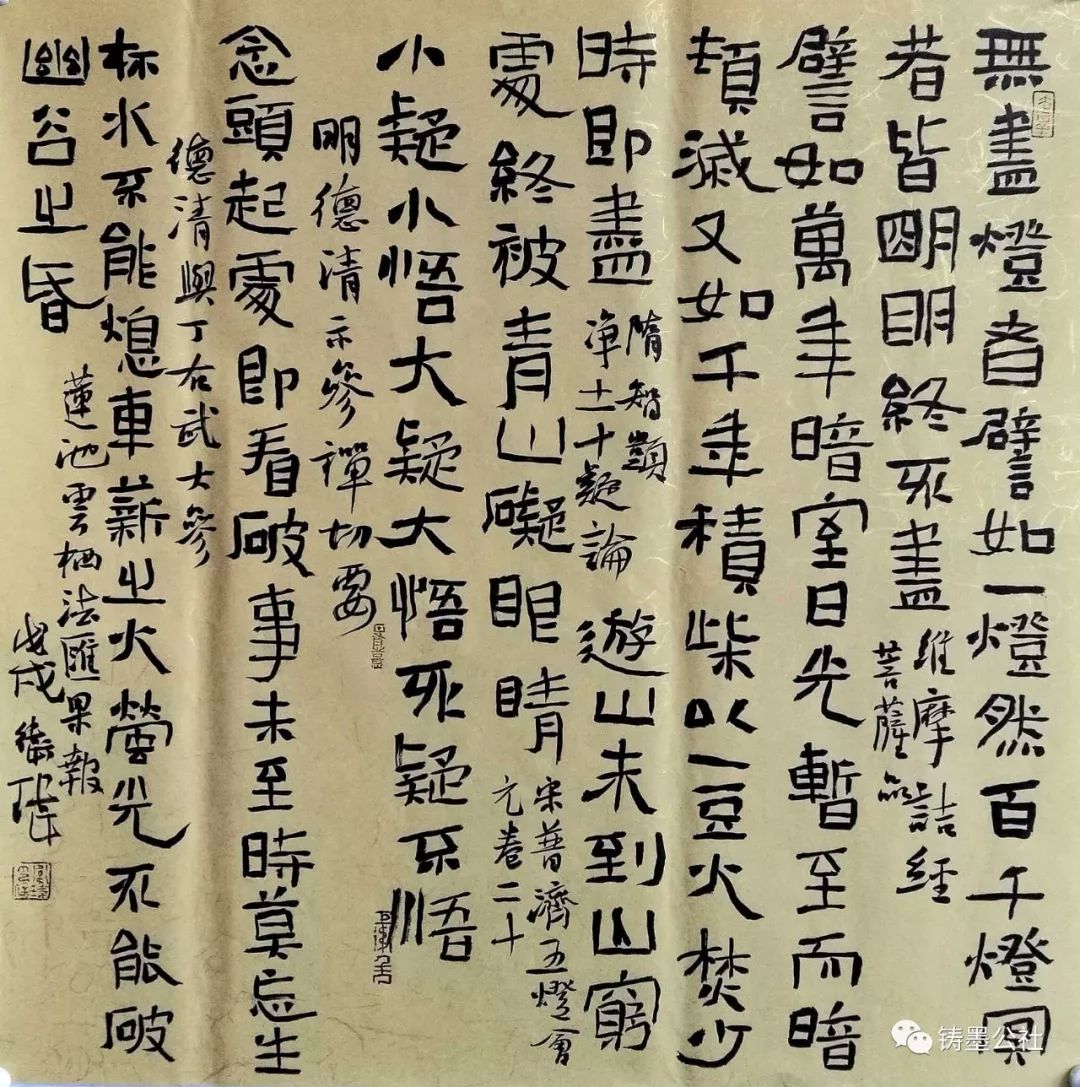 無盡燈者譬如一燈然百千燈冥
者皆明明終不盡
維摩詰經
菩薩品
譬如萬年暗室日光暫至而暗
頓滅又如千年積柴以一豆火焚少
時即盡
隋智顗
淨土十疑論
遊山未到山窮
處終被青山礙眼睛
宋普濟五燈會
元卷二十
小疑小悟大疑大悟不疑不悟
明德清示參禪切要
念頭起處即看破事未至時莫忘生
德清與丁右武大參
杯水不能熄車薪之火螢光不能破
幽谷之昏
蓮池雲栖法匯果報
戊戌
铸墨公社